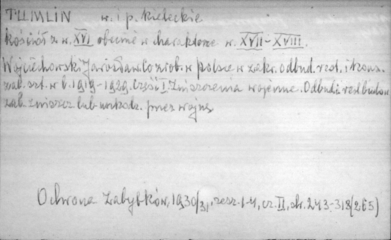 TUMLIN w. i p. kieleckie
Kościół z w. XVI obecnie w charakterze w. XVII-XVIII.
Wojciechowski Jarosław Co zrob. w Polsce w zakr. odbud. rest. i kons.
zab. szt. w l. 1919-1929. Część I. Zniszczenia wojenne. Odbud. i rest. budow.
zab. zniszcz. lub uszkodz. przez wojnę
Ochrona Zabytków, 1930/31, zesz. 1-4, cz. II, str. 243-318 (265)